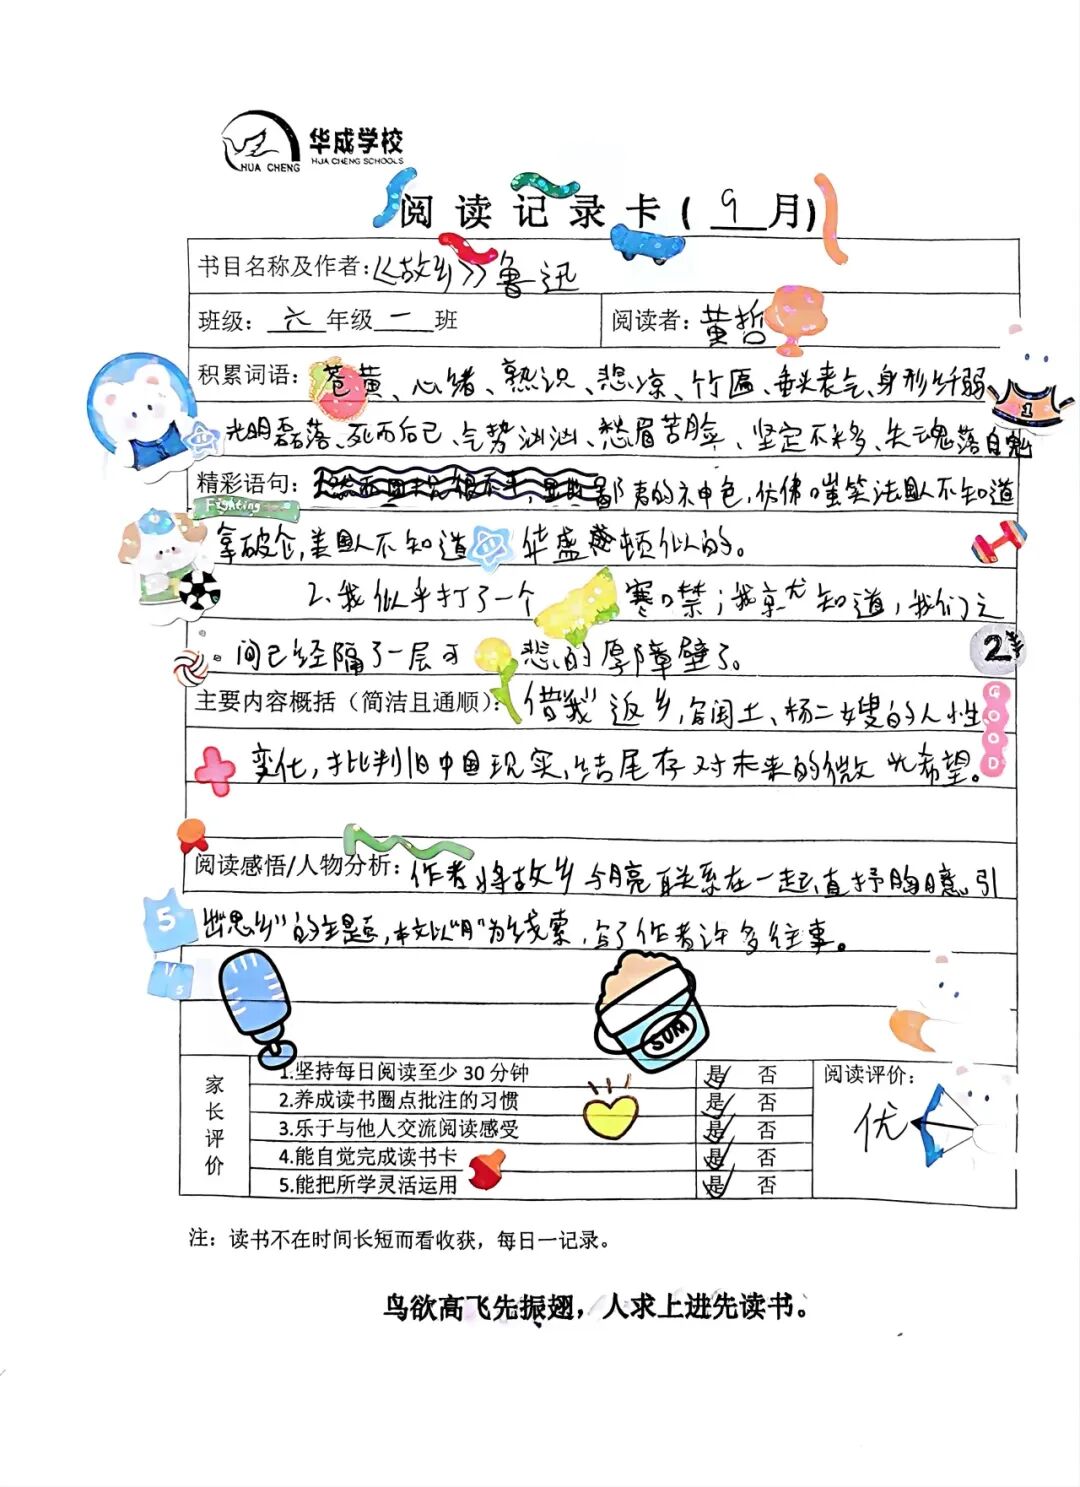 华成学校
HUA CHENG
HUA CHENG SCHOOLS
阅读记录卡(9月)
书目名称及作者:《故乡》鲁迅
班级:六年级一班
阅读者:黄哲
积累词语:苍黄、心绪、熟识、悲凉、竹匾、垂头丧气、身形纤弱
光明磊落、死而后已、气势汹汹、愁眉苦脸、坚定不移、失魂落魄
精彩语句:鄙夷的神色,仿佛嗤笑法国人不知道
Fighting
拿破仑,美国人不知道华盛顿似的。
2.我似乎打了一个寒噤;我就知道,我们之
间已经隔了一层可悲的厚障壁了。
主要内容概括(简洁且通顺):借“我”返乡,写闰土、杨二嫂的人性
变化,批判旧中国现实,结尾存对未来的微光希望。
GOOD
阅读感悟/人物分析:作者将故乡与月亮联系在一起,直抒胸臆,引
出“思乡”的主题,本文以“月”为线索,写了作者许多往事。
5
SUM
家长评价
1.坚持每日阅读至少30分钟 是 否
2.养成读书圈点批注的习惯 是 否
3.乐于与他人交流阅读感受 是 否
4.能自觉完成读书卡 是 否
5.能把所学灵活运用 是 否
阅读评价:
优
注:读书不在时间长短而看收获,每日一记录。
鸟欲高飞先振翅,人求上进先读书。